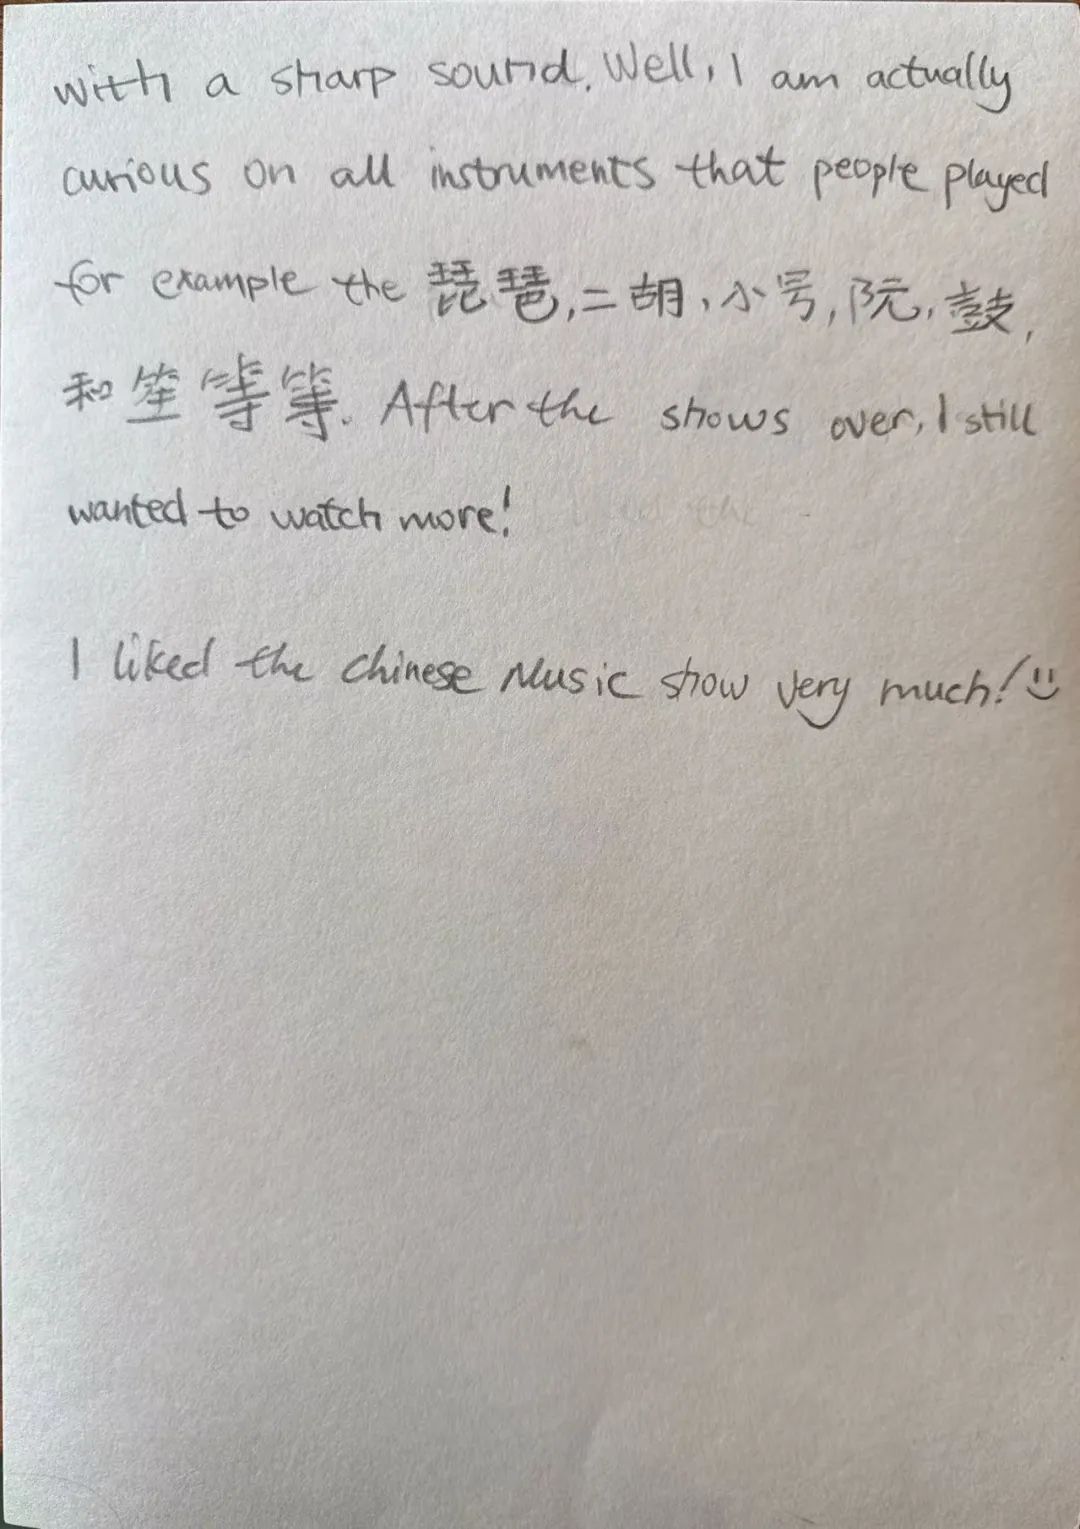 with a sharp sound. Well, I am actually
curious on all instruments that people played
for example the 琵琶,二胡,小号,阮,鼓,
和笙等等. After the shows over, I still
wanted to watch more!
I liked the Chinese Music show very much! :)